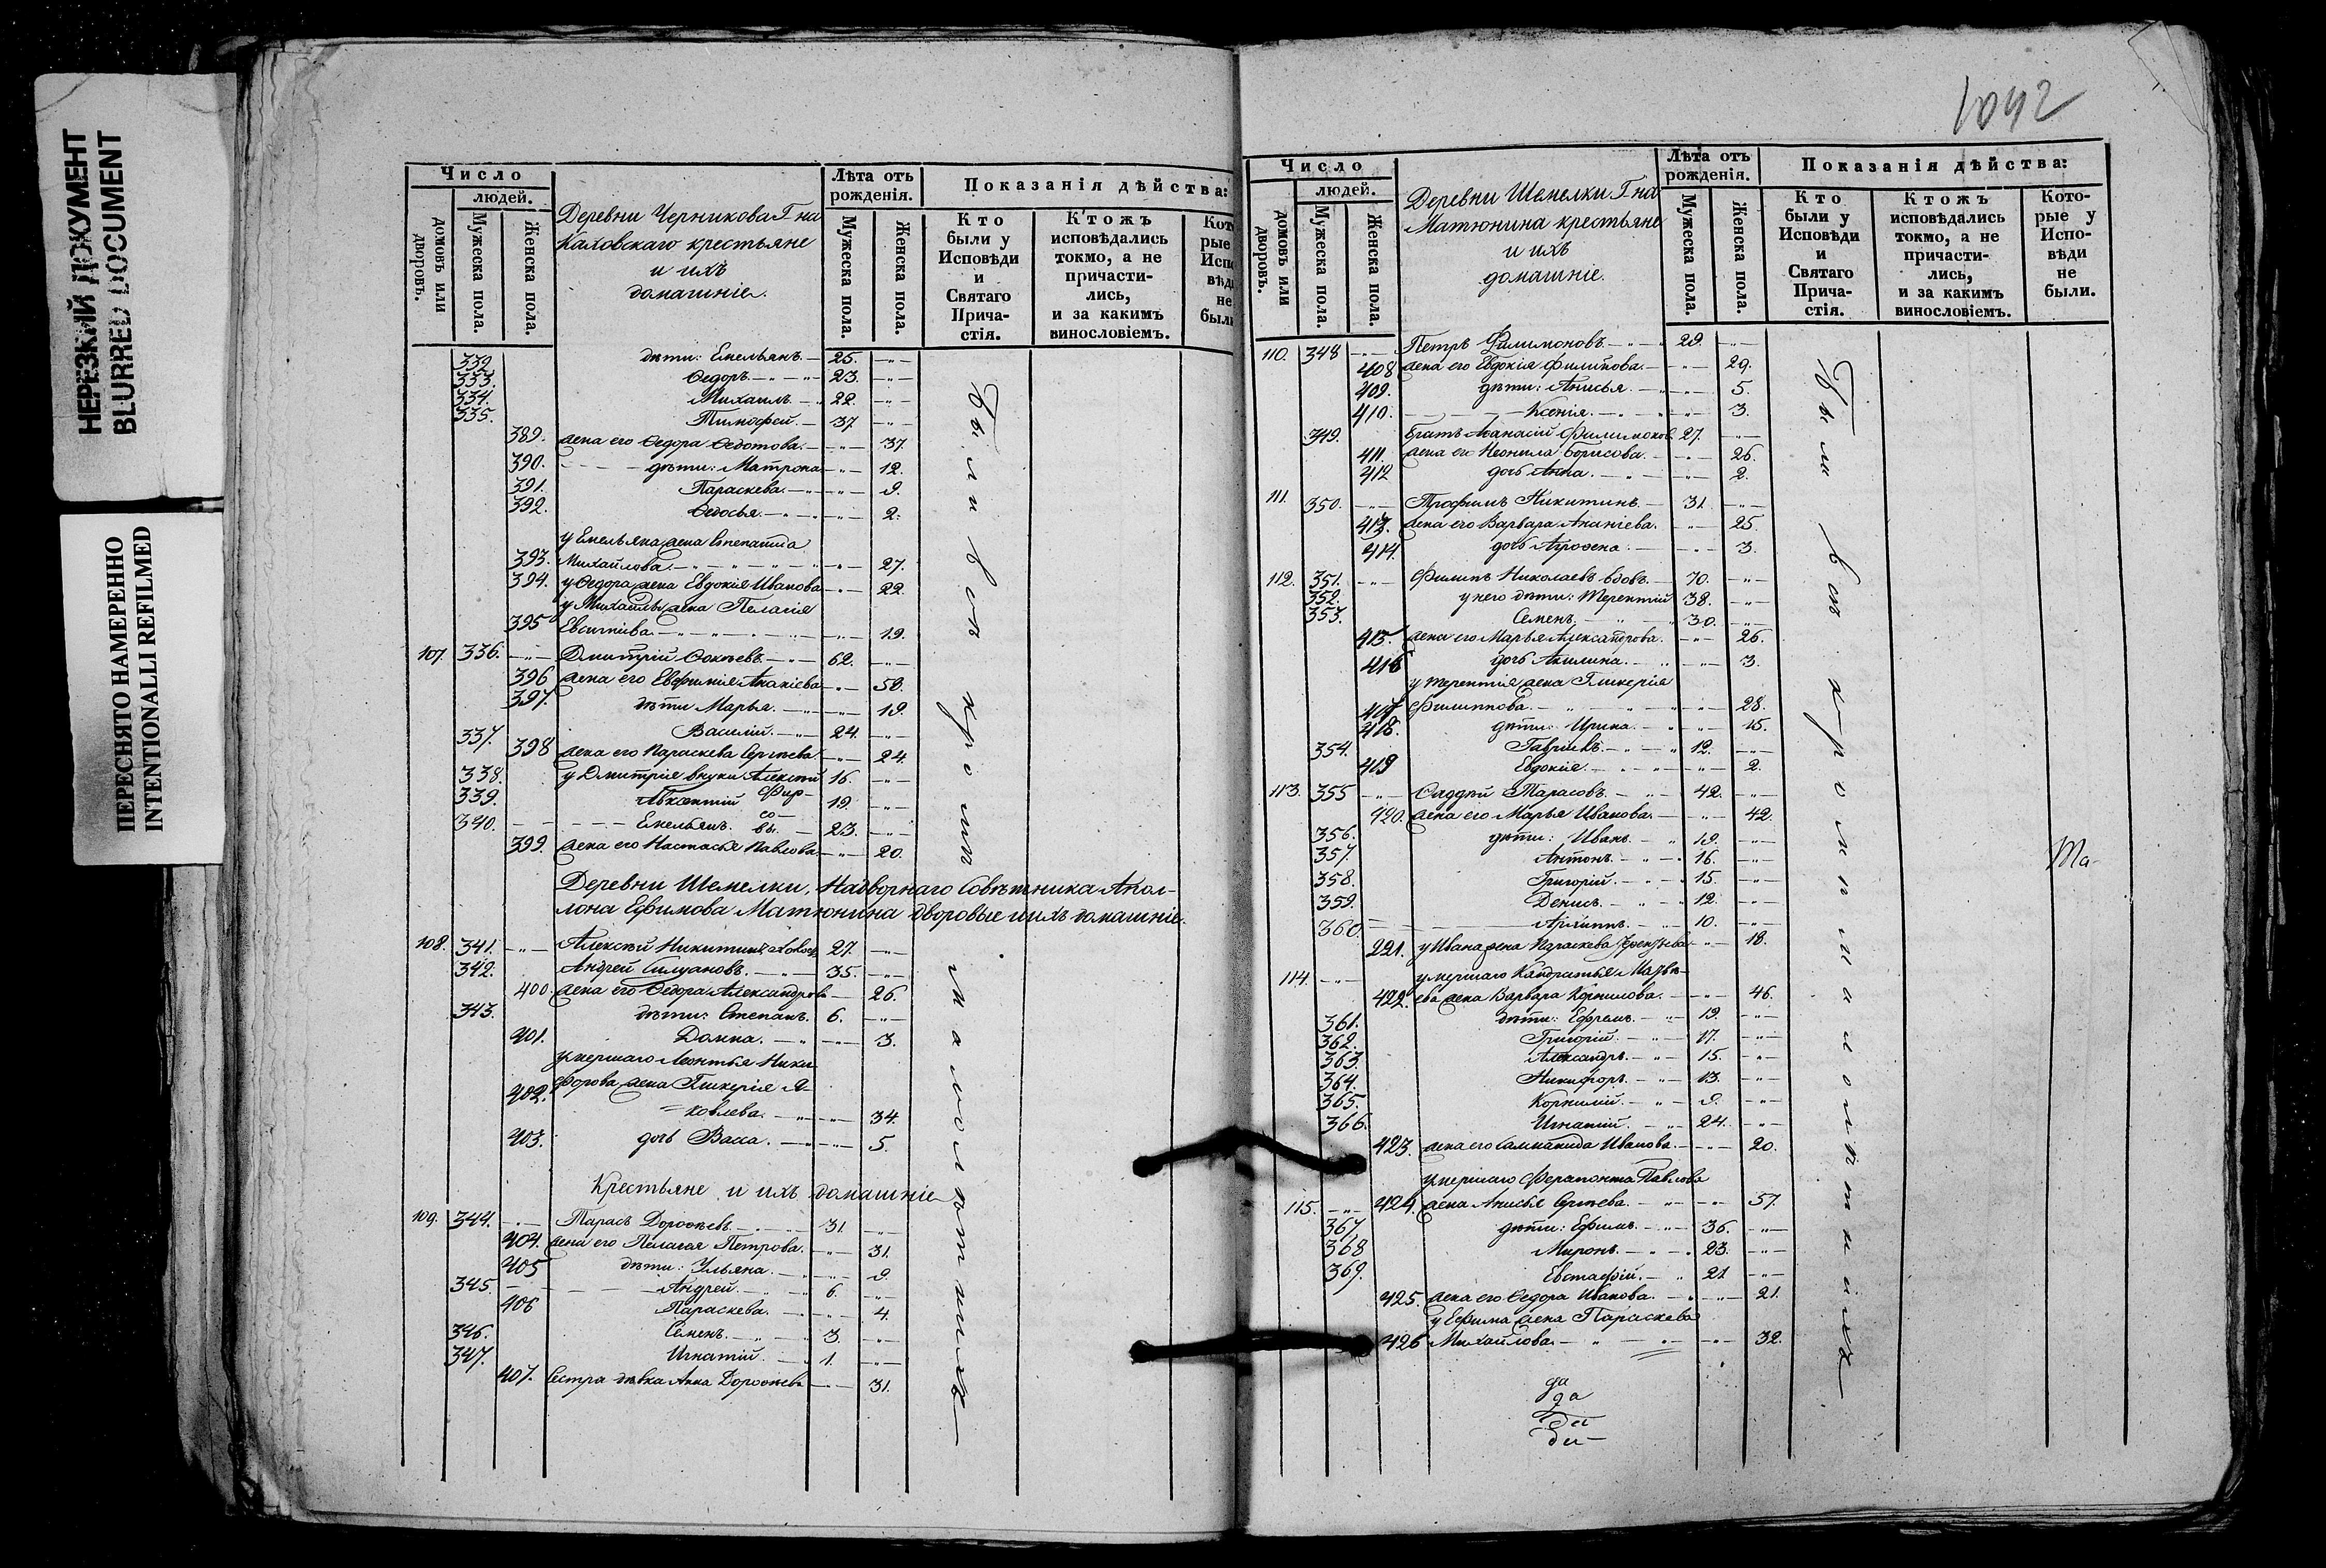 НЕРЕЗКИЙ ДОКУМЕНТ
BLURRED DOCUMENT
ПЕРЕСНЯТО НАМЕРЕННО
INTENTIONALLI REFILMED
Число
домовъ или дворовъ.
людей.
Мужеска пола.
Женска пола.
Деревни Черникова Г-на
Каховскаго крестьяне
и ихъ
домашніе.
Лѣта отъ рожденія.
Мужеска пола.
Женска пола.
Показанія дѣйства:
Кто были у Исповѣди и Святаго Причастія.
Ктожъ исповѣдались токмо, а не причастились, и за какимъ винословіемъ.
332 дѣти: Емельянъ 25.
333. Ѳедоръ 23.
334. Михаилъ 22.
335. Тимофей 37
389. жена его Ѳедора Ѳедотова 37
390. дѣти: Матрона 12.
391. Параскева 9.
392. Ѳедосья 2.
у Емельяна жена Степанида
393. Михайлова 27.
394. у Ѳедора жена Евдокія Иванова 22
у Михайлы жена Пелагія
395 Евсигніева 19.
107. 336. Дмитрій Ѳокѣевъ 62.
396 жена его Евфимія Ананіева 58.
397. дѣти Марья 19.
337. Василій 24.
398 жена его Параскева Сергѣева 24
338. у Дмитрія внуки Алексѣй 16.
339. Авксентій Фир- 19.
340. Емельянъ со-вы 23.
399. жена его Настасья Павлова 20.
Деревни Шемелки, Надворнаго Совѣтника Апол-
лона Ефимова Матюнина дворовые и ихъ домашніе.
108. 341. Алексѣй Никитинъ холост. 27.
342. Андрей Силуановъ 35.
400. жена его Ѳедора Александрова 26.
343. дѣти: Степанъ 6.
401. Домна 3.
умершаго Леонтья Ники-
402. форова жена Гликерія Я-
ковлева 34.
403. дочь Васса 5.
Крестьяне и ихъ домашніе
109. 344. Тарасъ Дороѳеевъ 31
404. жена его Пелагея Петрова 31.
405 дѣти: Ульяна 9
345. Андрей 6.
406 Параскева 4.
346. Семенъ 3.
347. Игнатій 1.
407. Сестра дѣвка Анна Дороѳеева 31.
Были вси кроми малолѣтнихъ
1042
Число
домовъ или дворовъ.
людей.
Мужеска пола.
Женска пола.
Деревни Шемелки Г-на
Матюнина крестьяне
и ихъ
домашніе.
Лѣта отъ рожденія.
Мужеска пола.
Женска пола.
Показанія дѣйства:
Кто были у Исповѣди и Святаго Причастія.
Ктожъ исповѣдались токмо, а не причастились, и за какимъ винословіемъ.
Которые у Исповѣди не были.
110. 348 Петръ Филимоновъ 29.
408 жена его Евдокія Филипова 29.
409. дѣти: Анисья 5.
410. Ксенія 3.
349. Братъ Аѳанасій Филимонов. 27.
411. жена его Неонила Борисова 26.
412 дочь Анна 2.
111. 350. Трофимъ Никитинъ 31
413. жена его Варвара Ананіева 25.
414. дочь Агрофена 3.
112. 351. Филипъ Николаевъ вдовъ 70.
352. у него дѣти: Терентій 38.
353. Семенъ 30.
415. жена его Марья Александрова 26.
416 дочь Акилина 3.
у Терентія жена Гликерія
417 Филиппова 28.
418. дѣти: Ирина 15.
354. Гавріилъ 12.
419 Евдокія 2.
113. 355 Ѳаддѣй Тарасовъ 42.
420. жена его Марья Иванова 42.
356. дѣти: Иванъ 19.
357. Антонъ 16.
358. Григорій 15.
359. Денисъ 12.
360. Архиппъ 10.
221. у Ивана жена Параскева Терентьева 18.
114. умершаго Кандратья Матвѣ-
422. ева жена Варвара Корнилова 46.
361. дѣти: Ефремъ 19.
362. Григорій 17.
363. Александръ 15.
364. Никифоръ 13.
365. Корнилій 9.
366. Игнатій 24.
423. жена его Саломанида Иванова 20.
умершаго Ферапонта Павлова
115. 424. жена Анисья Сергѣева 57.
367. дѣти: Ефимъ 36.
368 Миронъ 23.
369. Евстафій 21
425. жена его Ѳедора Иванова 21.
у Ефима жена Параскева
426 Михайлова 32.
Были вси кроми малолѣтнихъ
Ma